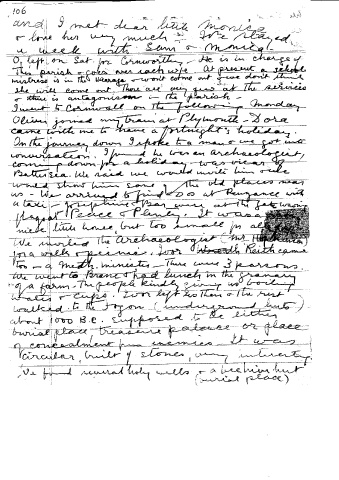 106
and I met dear little Monica
& love her very much - Ivor stayed
a week with Sum & Monica.
O. left on Sat for Cornworthy - He is in charge of
this parish & goes over each wk. At present a
mistress is in the vicarage & won't come out & we don't think
she will come out. There are very few at the services
& there is antagonism in the parish.
I went to Cornwall on the following Monday
Oliver joined my train at Plymouth - Dora
came with me to have a fortnight's holiday.
In the journey down I spoke to a man & we got into
conversation. I found he was an archaeologist,
coming down for a holiday - was vicar of
Battersea. We said we would invite him & we
would show him some of the old places near
us - We arrived to find at Penzance with
a taxi - Josephine & Bar were at the
Peace & Plenty. It was a
nice little house, but too small for all
We invited the Archaeologist - Mr
for a walk & picnic. Ivor Keith came
too - a Meth. minister - There were 3 parsons.
We went to & had lunch in the granary
of a farm. The people kindly giving us boiling
water & cups. Ivor left us then & the rest
walked to the (underground huts)
about 1000 B.C. Supposed to be either
burial place treasure palace or place
of concealment from enemies - It was
circular, built of stones, very interesting.
We found several holy wells & a beehive hut
(burial place)